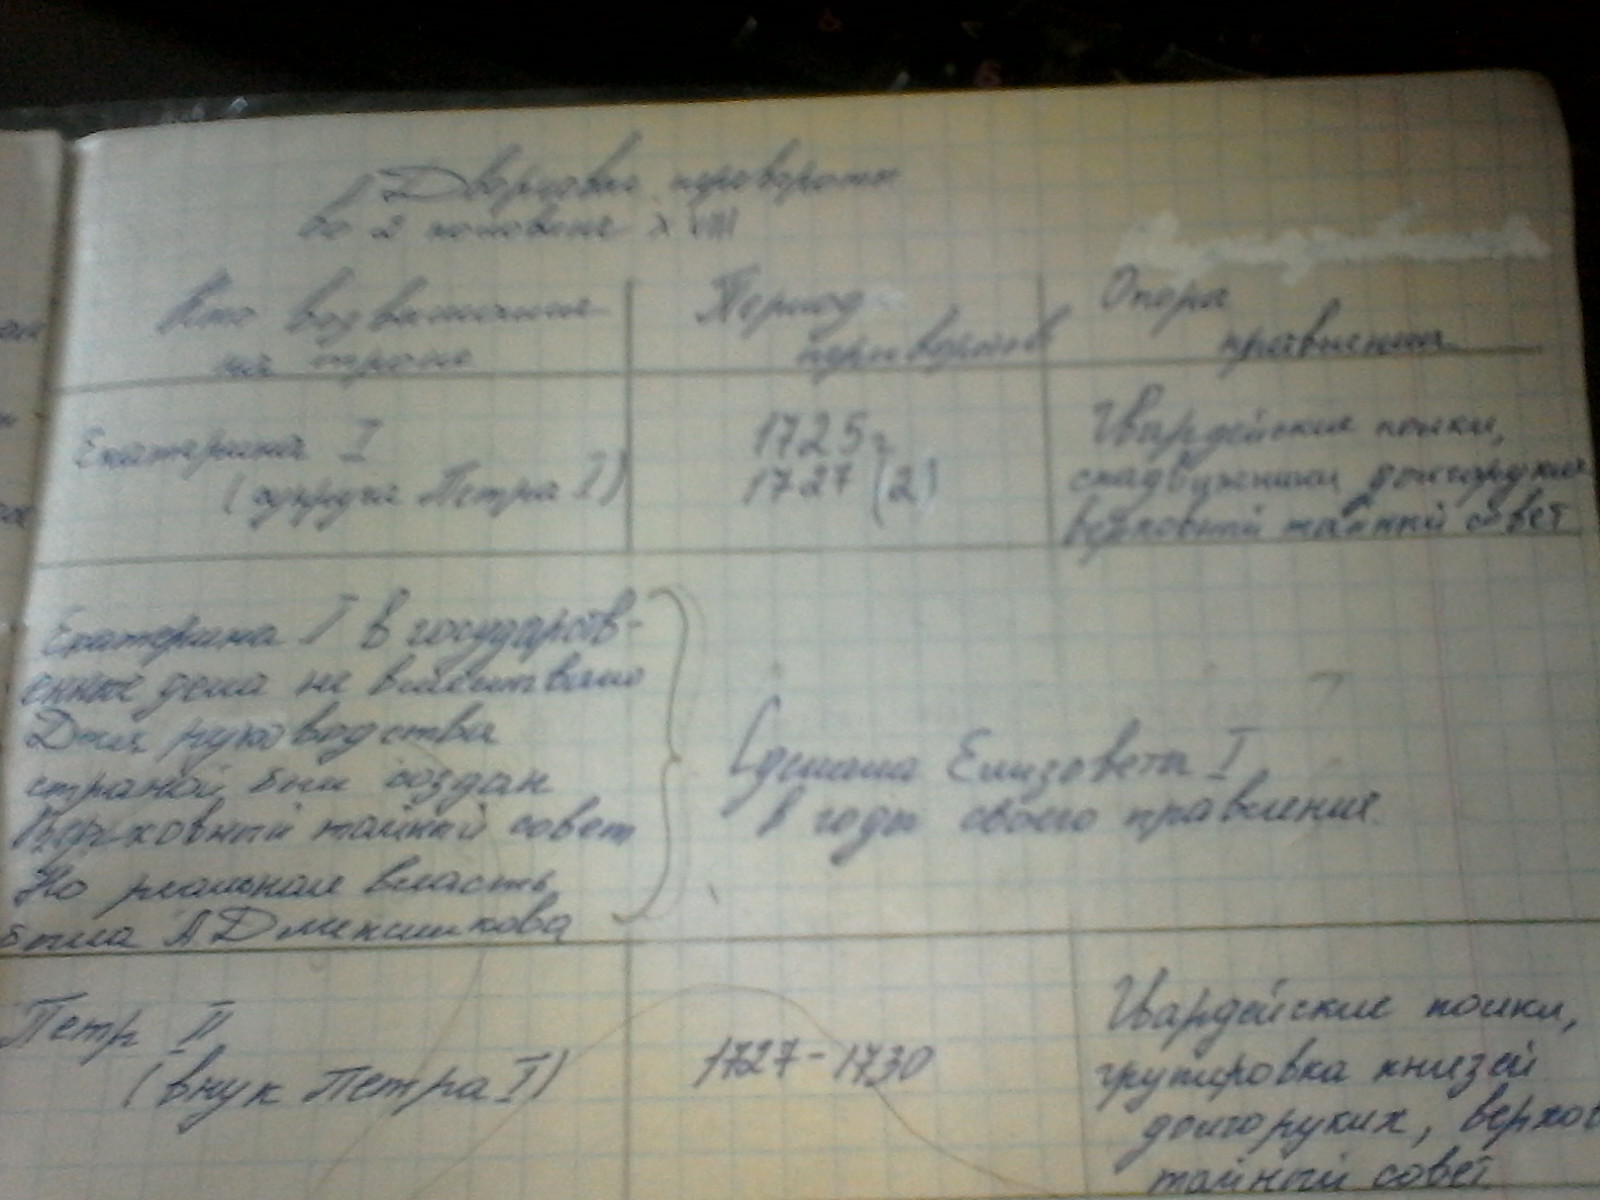 Дворцовые перевороты
во 2 половине XVIII
Кто возвышался
на троне
Период
переворотов
Опора
правления
Екатерина I
(супруга Петра I)
1725г
1727 (2)
Гвардейские полки,
долгоруких
верховный тайный совет
Екатерина I в государств-
енные дела не
Для руководства
страной был создан
Верховный тайный совет
Но реальная власть
была А Д меншикова
Сделала Елизовета I
в годы своего правления.
Петр II
(внук Петра I)
1727-1730
Гвардейские полки,
групировка князей
долгоруких, верхов
тайный совет